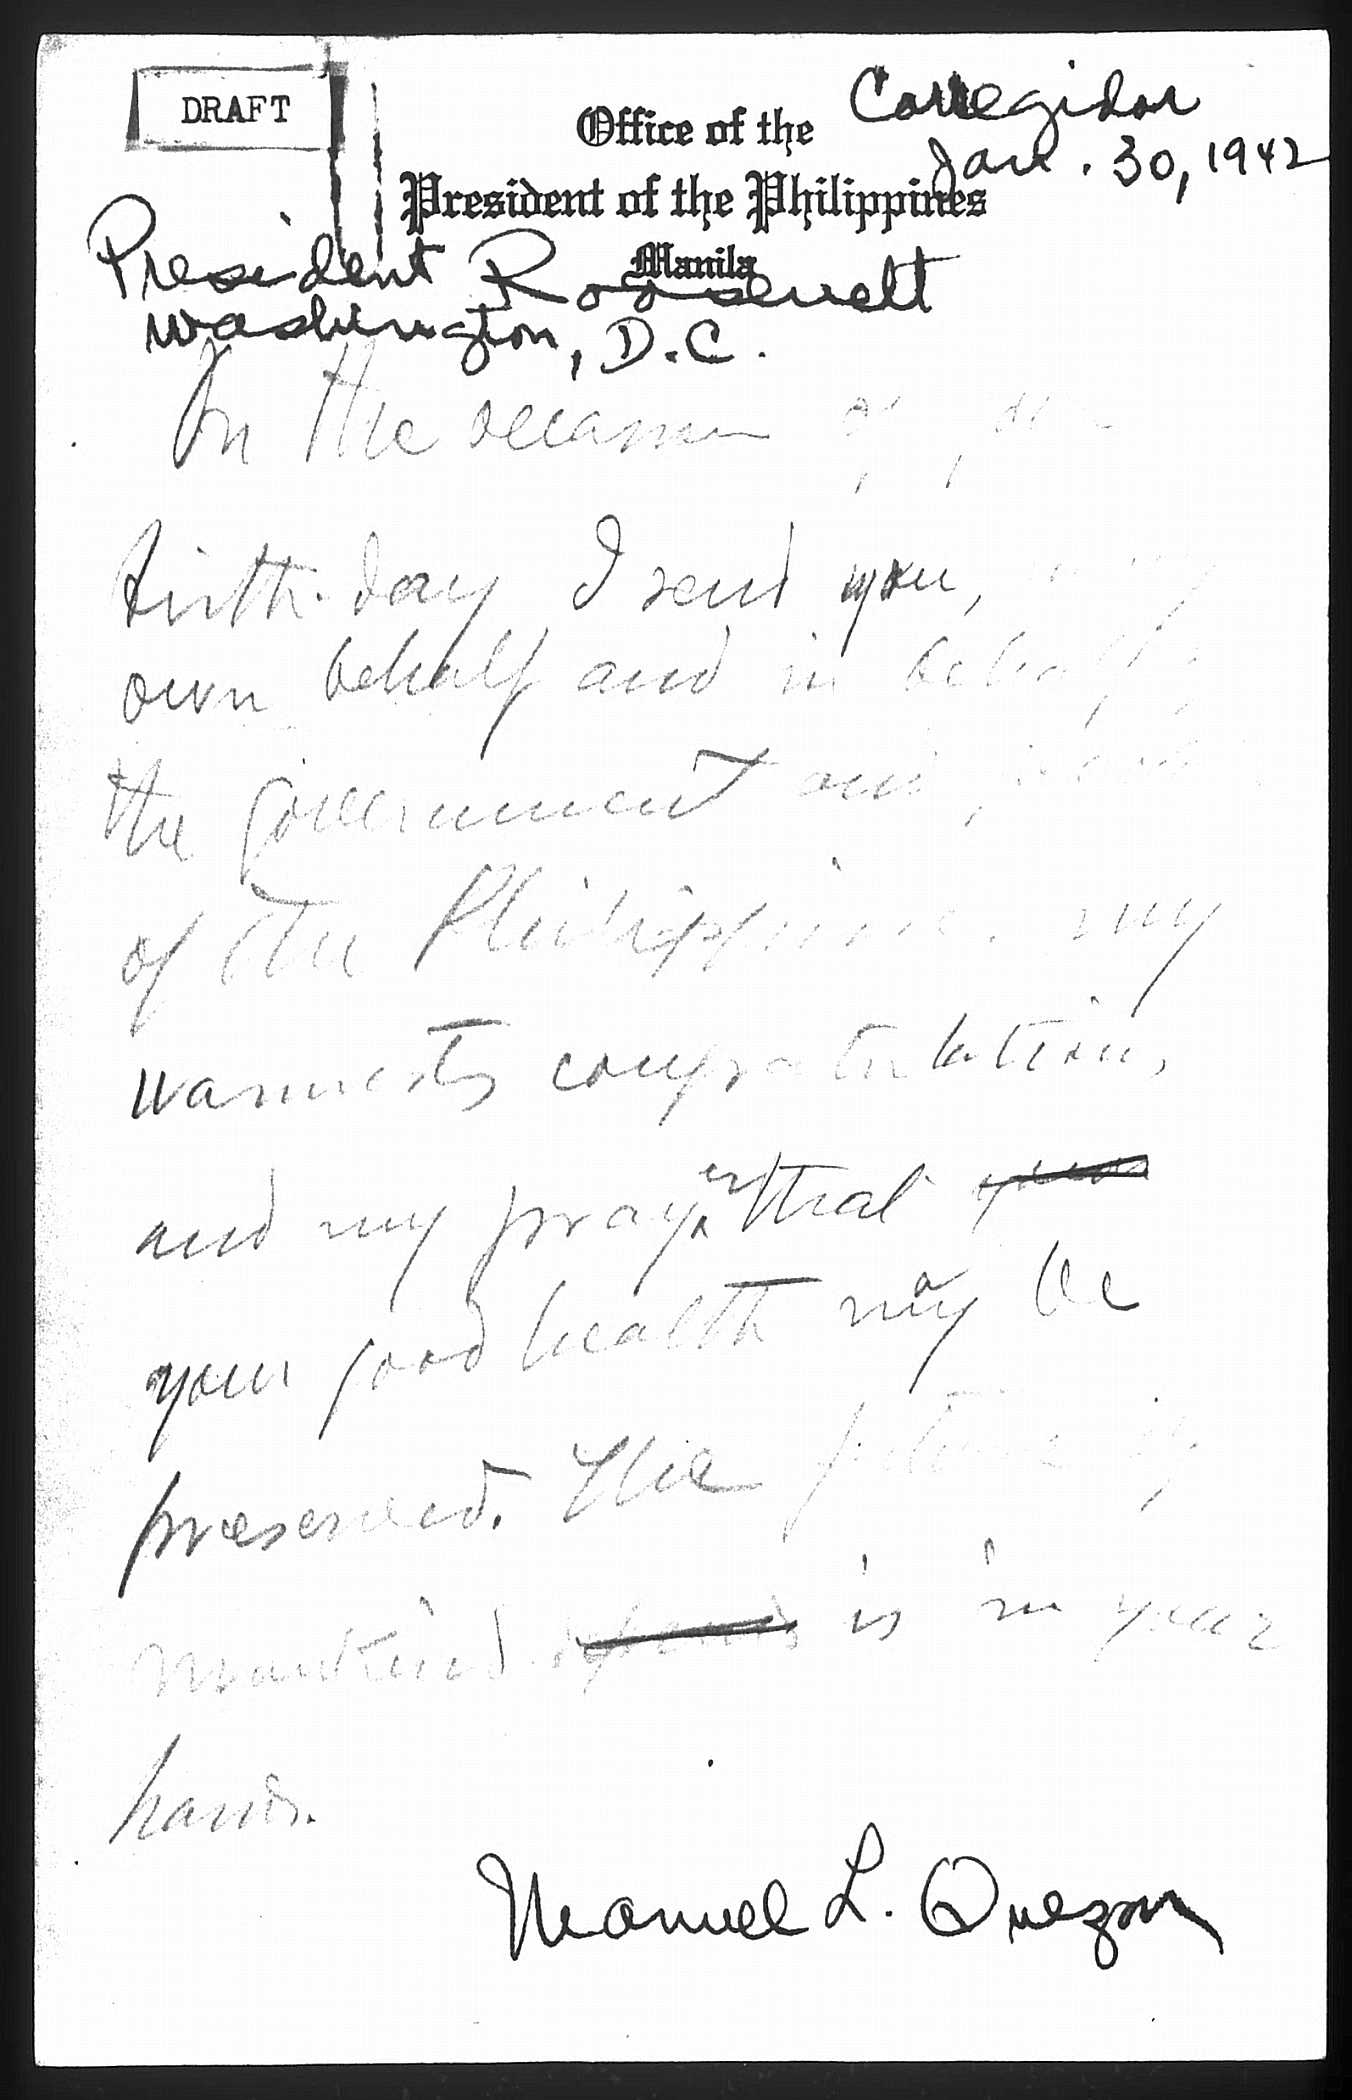 DRAFT
Corregidor
Jan. 30, 1942
Office of the
President of the Philippines
Manila
President Roosevelt
Washington, D.C.
On the occasion of your
birth-day I send you, in my
own behalf and in behalf of
the Government and people
of the Philippines my
warmests congratulations
and my prayer that
your good health may be
preserved. The future of
mankind depends is in your
hands.
Manuel L. Quezon